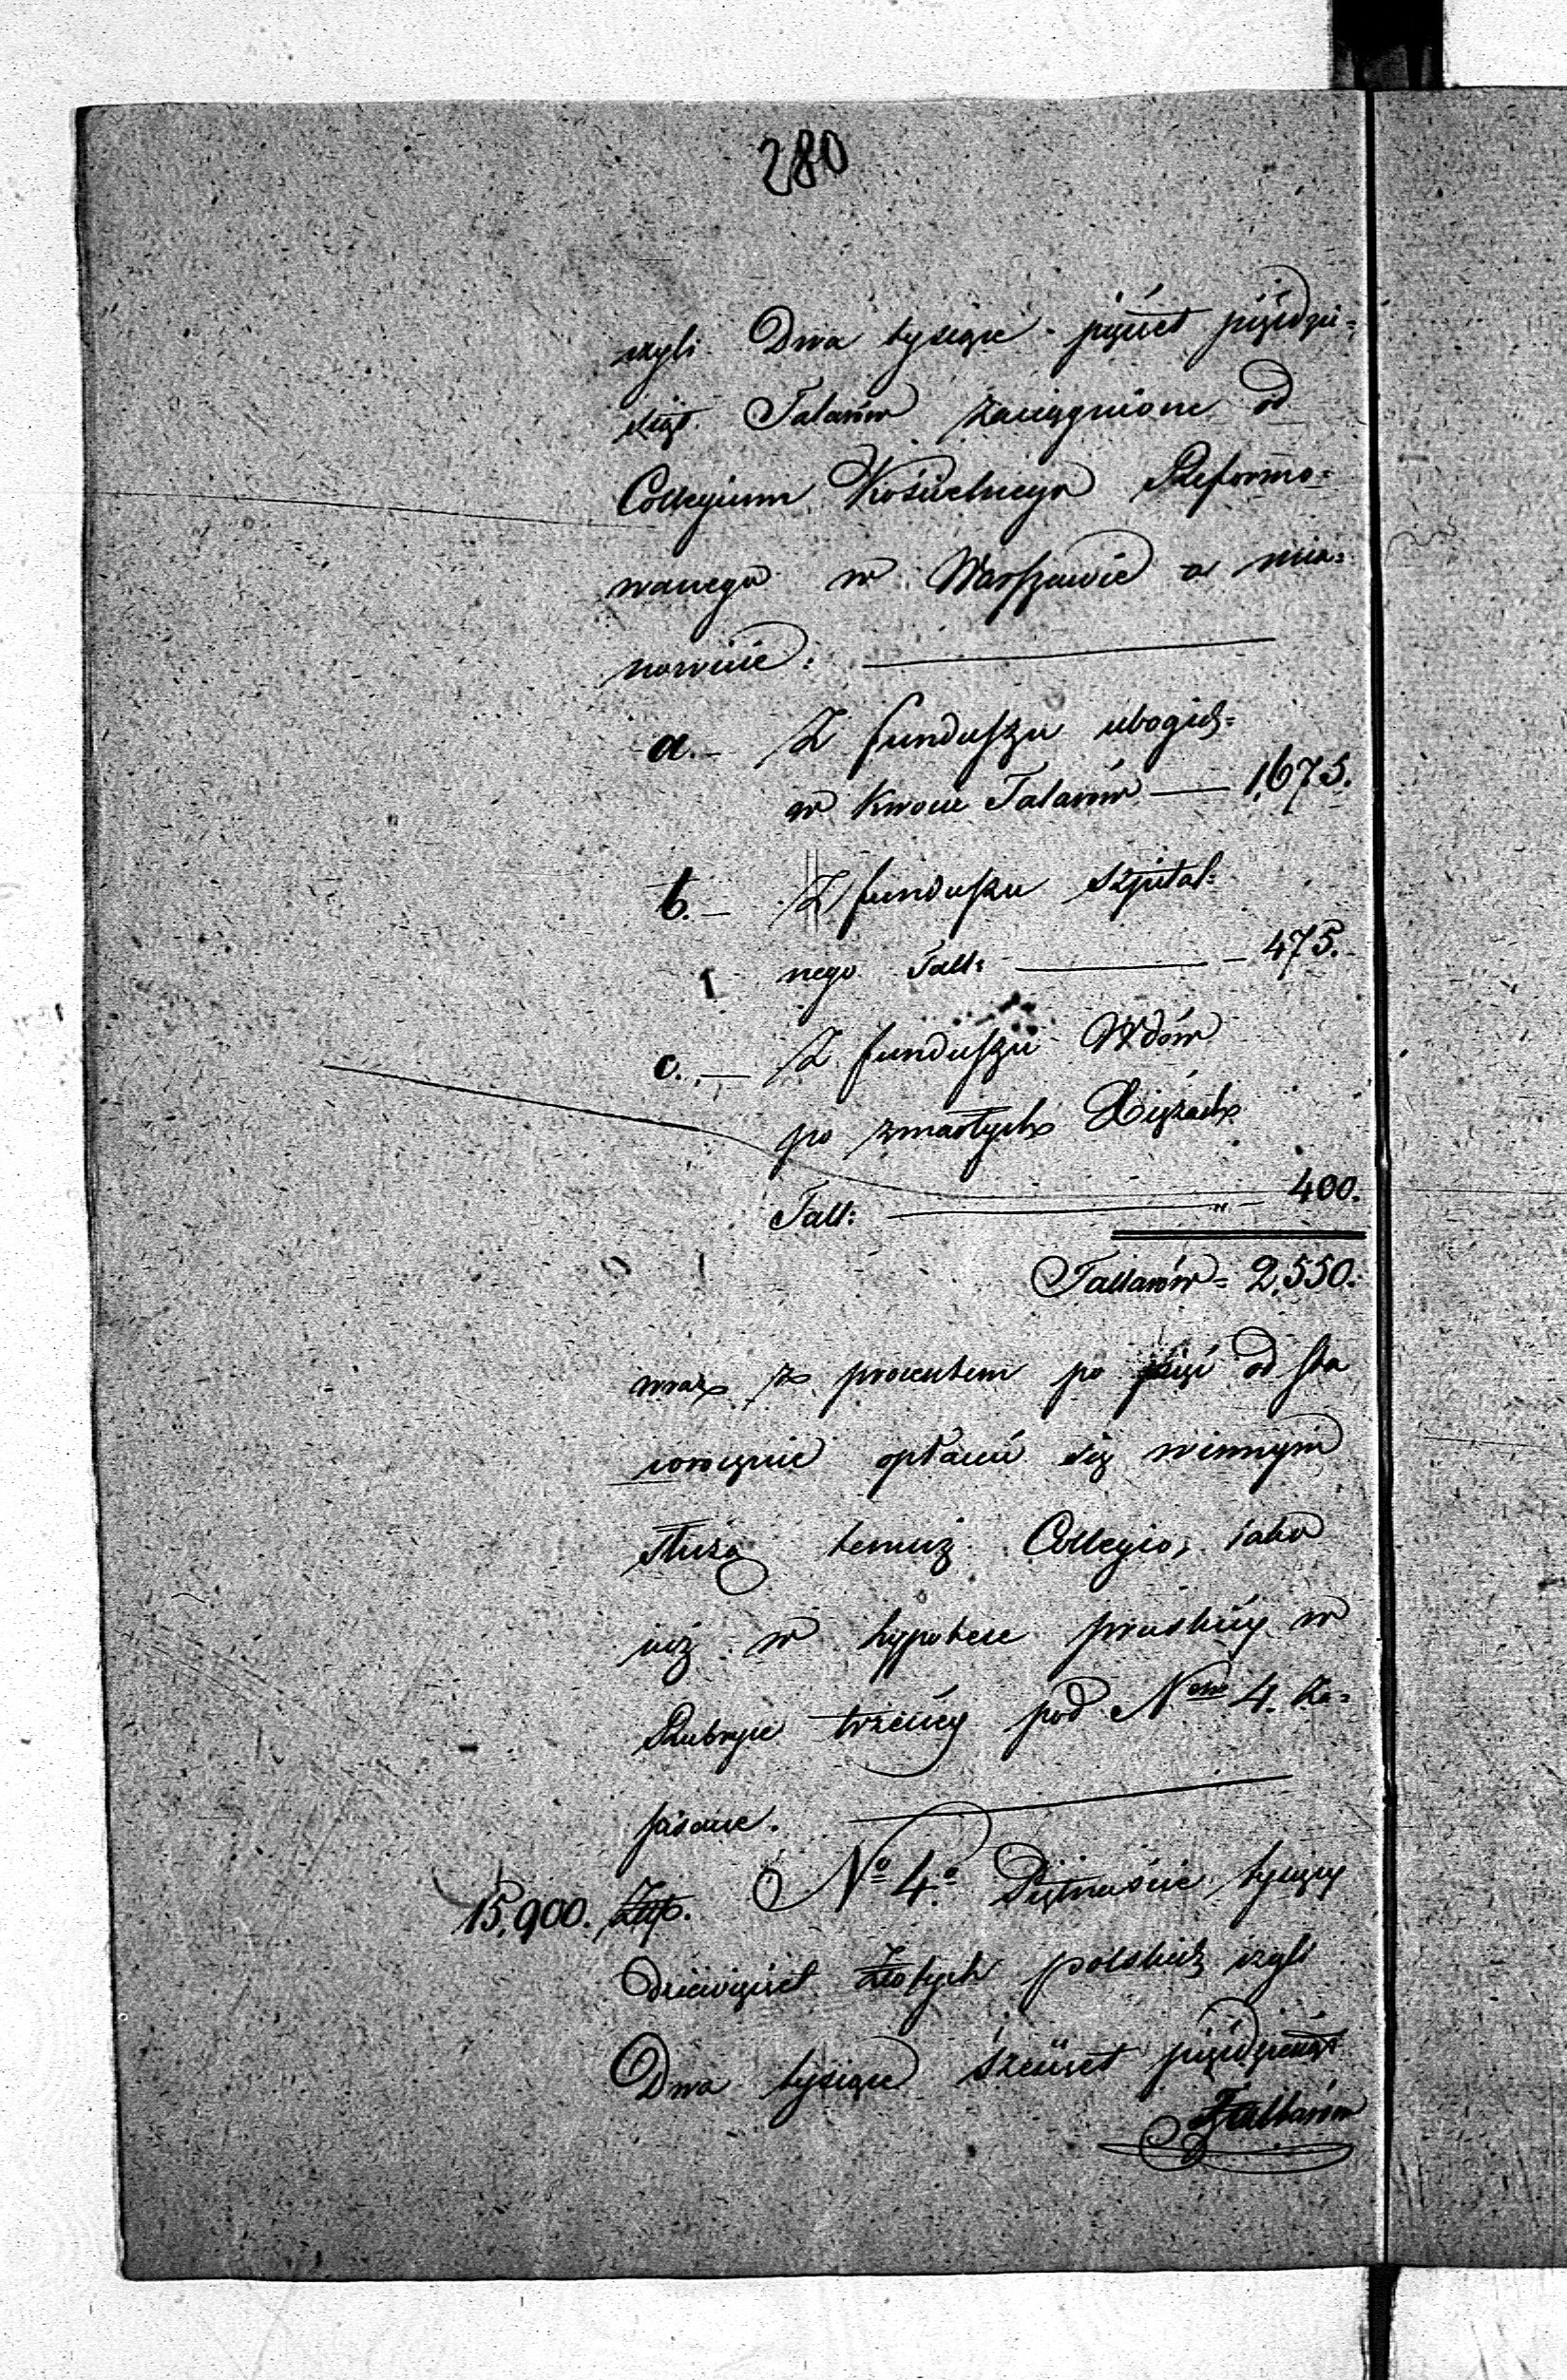 280
czyli Dwa tysiące pięćset pięćdzie=
siąt Talarów zaciągnione od
Collegium Kościelnego Reformo=
wanego w Warszawie a mia=
nowicie:
a. Z funduszu ubogich
w kwocie Talarów — 1,675.
b. — Z funduszu szpital=
nego Tall: — 475.
c. — Z funduszu Wdów
po zmarłych Xiężach
Tall: — „ — 400.
Tallarów = 2,550.
wraz z procentem po pięć od sta
corocznie opłacać się winnym
służą temuż Collegio, tako
iuż w hypotece pruskiey w
Rubryce trzeciey pod Nrem 4. za=
pisane.
15,900. Złp. No 4o Piętnaście tysięcy
dziewięćset Złotych polskich czyli
Dwa tysiące sześćset pięćdziesiąt
Tallarów